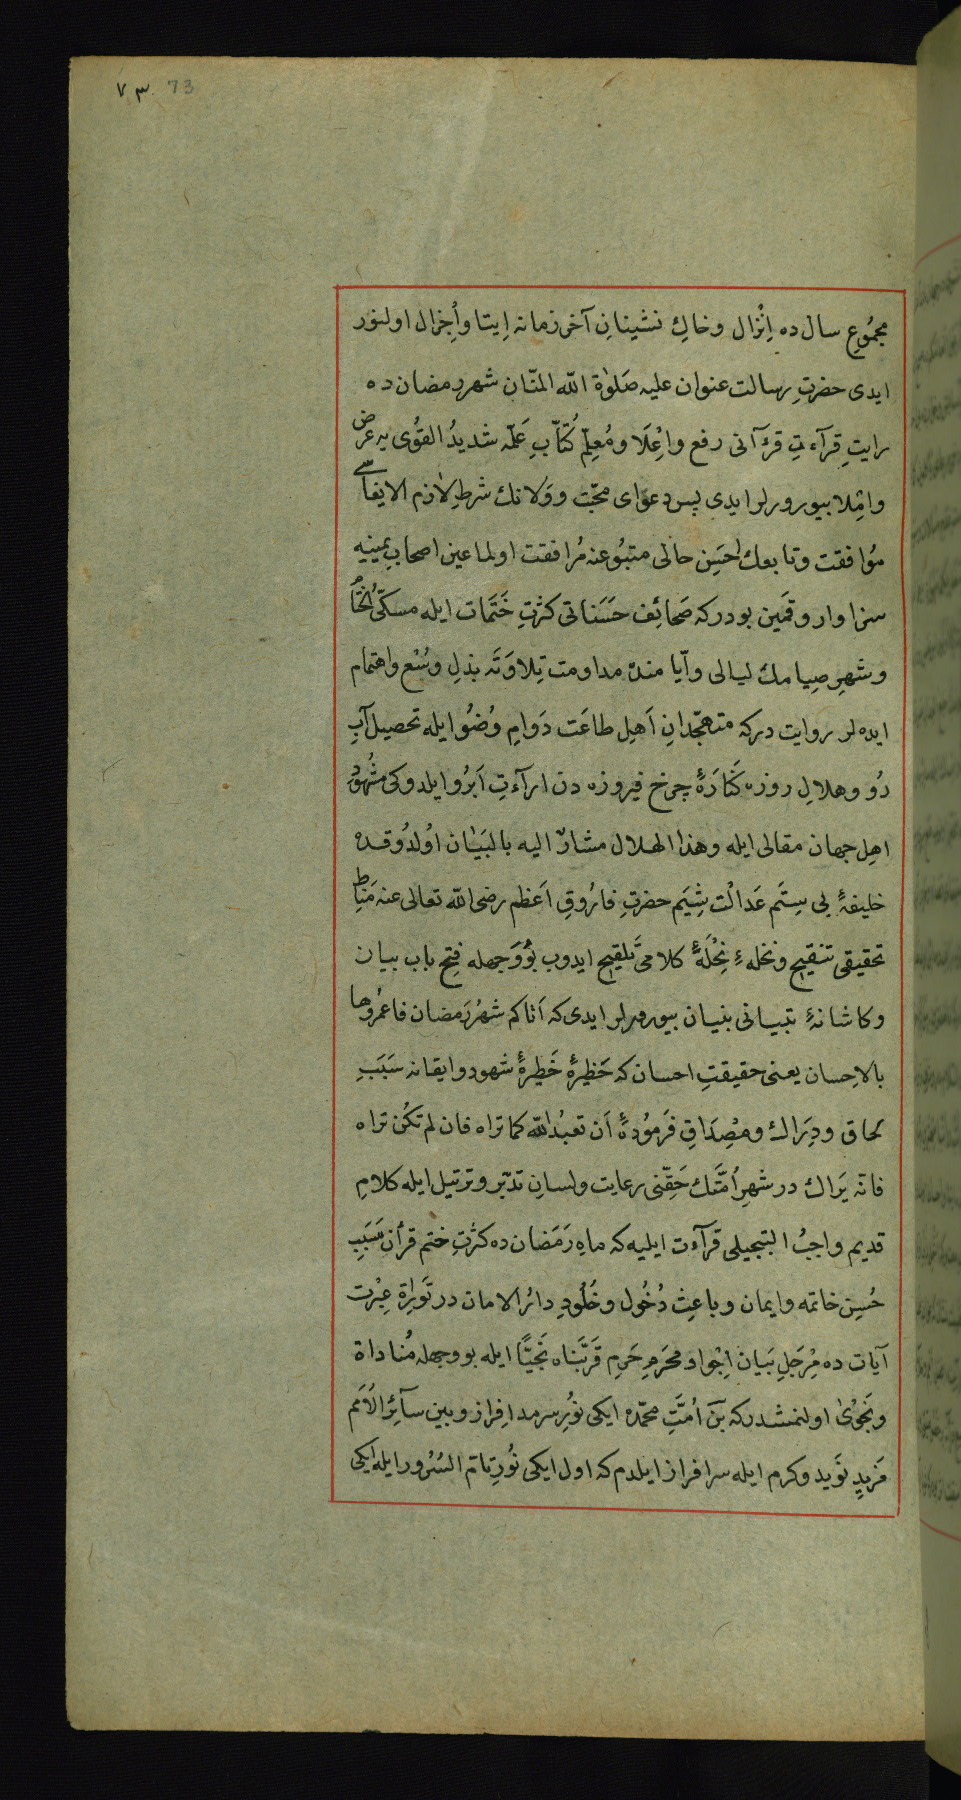 ٧٣ 73
مجمُوعِ سال ده اِنْزال وخاكِ نشينانِ آخر زمانه اِيتا واُجزال اولنور
ايدى حضرتِ رسالت عنوان عليه صَلوٰة اللّه المنّان شهر رمضان ده
رايتِ قرآءتِ قرءآنى رفع واِعْلَا ومُعِلِّم كُتّابِ عَلّمه شديدُ القُوى يه عرض
واِمْلا بيورورلر ايدى پس دعواى محبّت ووَلانك شرطِ لازم الايفاسے
مُوافقت وتابعك اَحسَنِ حالى متبُوعنه مُرافقت اولماعين اصحابِ يمينيه
سزاوار وقَمين بودركه صَحائِف حَسَناتى كثرتِ خَتَمات ايله مسكىّ الختا
وشهرِ صِيامك ليالى واَيامنده مداومت تِلاوَتَه بذلِ وسُع واهتمام
ايده لر روايت دركه متهجّدانِ اَهلِ طاعَت دَوامِ وُضُو ايله تحصيلِ آبِ
رُو وهلالِ روزه كَنَارَهٔ چرخ فيروزه دن ارآءتِ اَبرُو ايلدوكى مشُهودِ
اهلِ جهان مقالى ايله وهذا الهلال مشارٌ اليه بالبَيَان اوُلدُوقده
خليفهٔ بى سِتَم عَدالَت شِيَم حضرتِ فارُوقِ اَعظم رضى اللّه تعالى عنه مَناطِ
تحقيقى تنقيح ونخلهءِ نِحْلَهٔ كلامى تَلقيح ايدوب بُووَجهله فتحِ باب بيان
وكاشانهٔ تبيانى بنيان بيورورلر ايدى كه اَتاكم شهُر رَمضان فاعمُروها
بالاِحسان يعنى حقيقتِ احسان كه حَظِرهٔ خَطِيرهٔ شهود وايقانه سَبَبِ
لحاق ودِرَاك ومِصْدَاقِ فَرمُودهٔ اَن تعبُد اللّه كما تراه فان لم تكُن تراه
فانّه يَراك در شهرِ اُمَّتَك حَقّنى رعايت ولسانِ تدبّر وترتيل ايله كلامِ
قديم واجبُ التبجيلى قرآءت ايليه كه ماهِ رَمَضان ده كثرتِ ختم قرأن سَبَبِ
حُسنِ خاتمه وايمان وباعثِ دُخُول وخُلُودِ دارُ الامان در تَورٰية عِبْرت
آيات ده مِرْجَلِ بَيان اِجْواد محرَمِ حَرمِ قَرَّبناه نَجيًّا ايله بو وجهله مُناداة
ونَجْوىٰ اولنمشدركه بَن اُمَّتِ محمّده ايكى نوُرِ سرمد افِراز وبين سآئِرُ الاُمَم
مَزيدِ نَويد وكرم ايله سرافراز ايلدم كه اول ايكى نُورِ تامّ السُرُور ايله ايكى